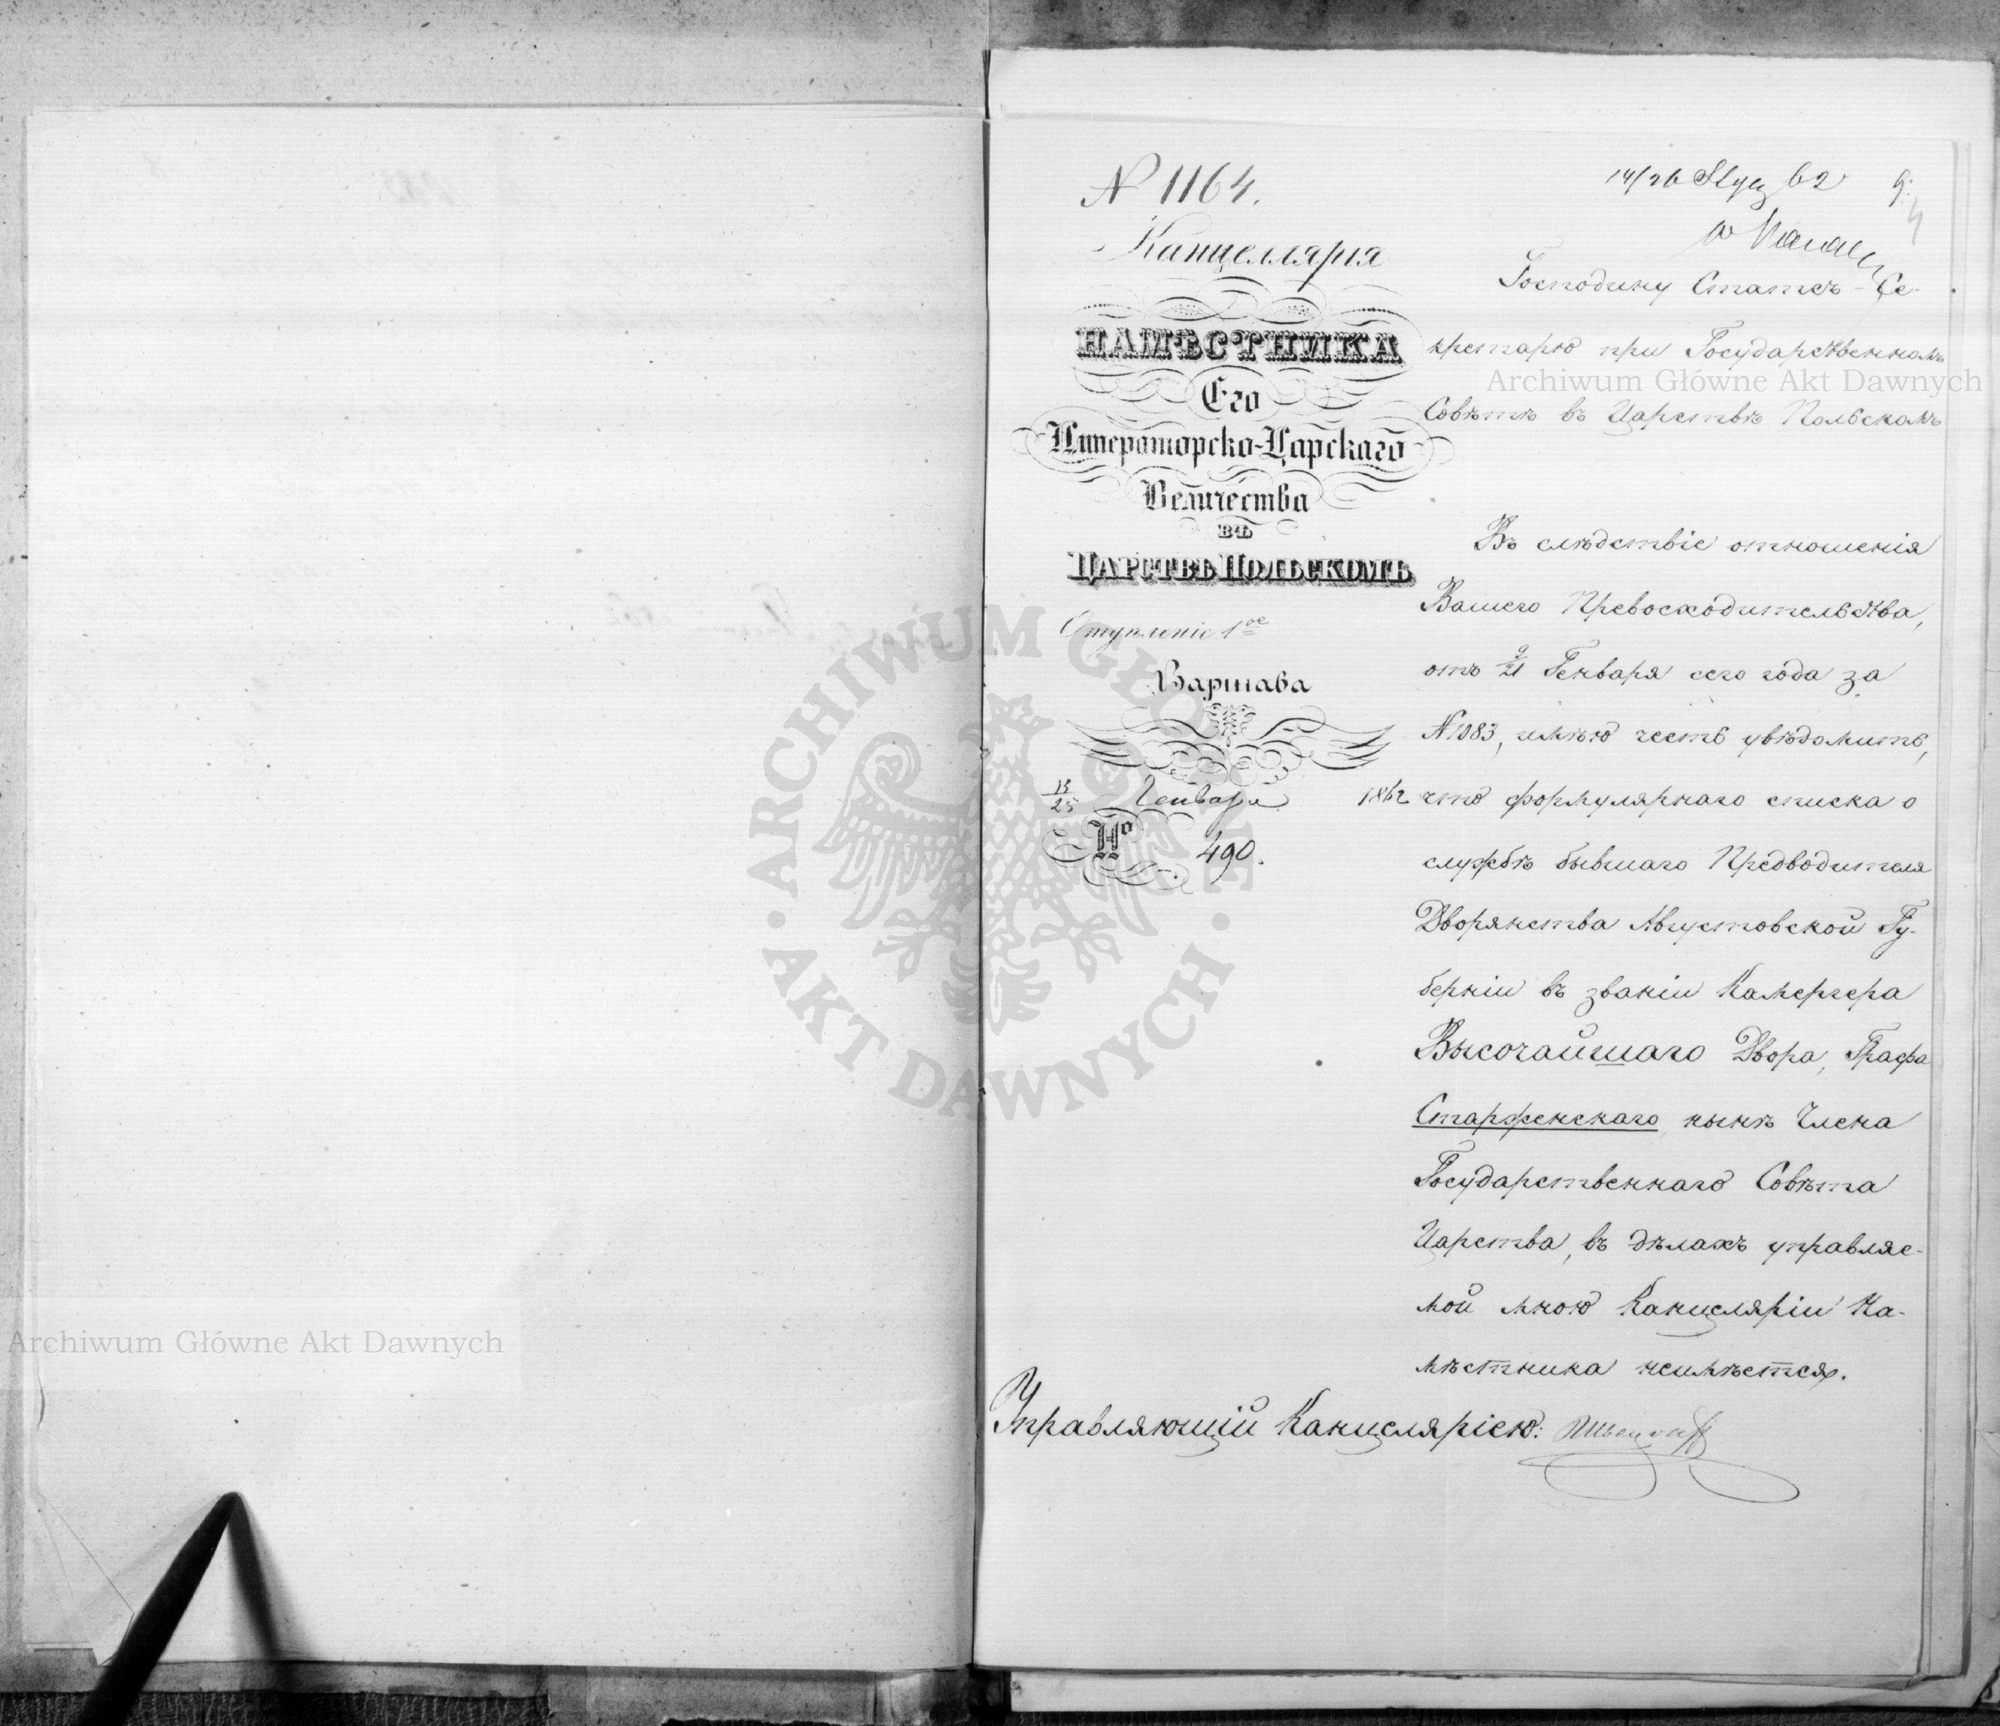 N 1164.
14/26 Stycz 62
9.
Канцеллярія
НАМѢСТНИКА
Его
Императорско-Царскаго
Величества
ВЪ
ЦАРСТВѢ ПОЛЬСКОМЪ
Отдѣленіе 1ое
Варшава
13/25 Генваря 1862
No 490.
Господину Статсъ-Се-
кретарю при Государственномъ
Совѣтѣ въ Царствѣ Польскомъ
Въ слѣдствіе отношенія
Вашего Превосходительства,
отъ 9/21 Генваря сего года за
N 1083, имѣю честь увѣдомить,
что формулярнаго списка о
службѣ бывшаго Предводителя
Дворянства Августовской Гу-
берніи въ званіи Камергера
Высочайшаго Двора, Графа
Старженскаго нынѣ Члена
Государственнаго Совѣта
Царства, въ дѣлахъ управляе-
мой мною Канцеляріи На-
мѣстника неимѣется.
Управляющій Канцеляріею:
Archiwum Główne Akt Dawnych
Archiwum Główne Akt Dawnych
ARCHIWUM GŁÓWNE AKT DAWNYCH